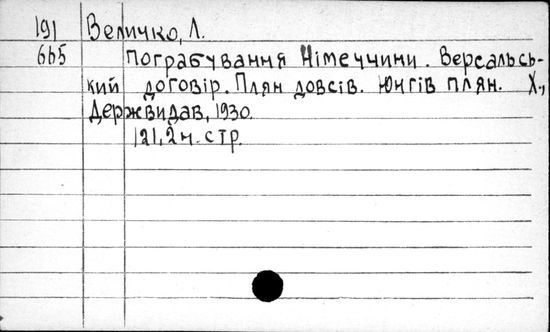 191 Величко, Л.
665 Пограбування Німеччини. Версальсь-
кий договір. Плян довсів. Юнгів плян. Х.,
Держвидав, 1930.
121, 2 н. стр.